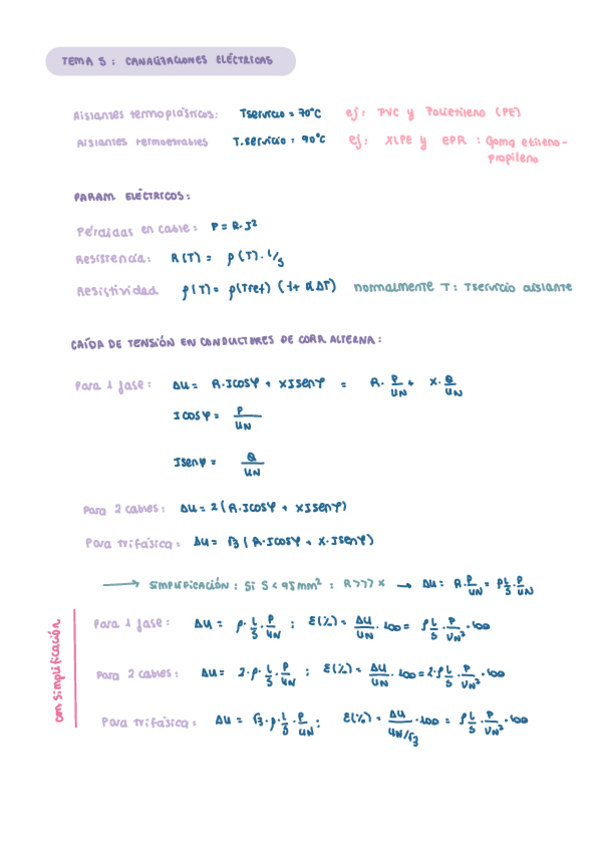 TEMA 5: CANALIZACIONES ELÉCTRICAS
Aislantes termoplásticos: Tservicio = 70°C ej: PVC y Polietileno (PE)
Aislantes termoestables T.servicio: 90°C ej: XLPE y EPR: Goma etileno-
propileno
PARAM ELÉCTRICOS:
Pérdidas en cable: P = R·I²
Resistencia: R(T) = ρ(T)·L/S
Resistividad ρ(T) = ρ(Tref) (1+αΔT) normalmente T: Tservicio aislante
CAÍDA DE TENSIÓN EN CONDUCTORES DE CORR ALTERNA:
Para 1 fase: ΔU = R·Icosφ + XIsenφ = R·P/UN + X·Q/UN
Icosφ = P/UN
Isenφ = Q/UN
Para 2 cables: ΔU = 2(R·Icosφ + XIsenφ)
Para trifásica: ΔU = √3(R·Icosφ + X·Isenφ)
→ SIMPLIFICACIÓN: Si S < 95mm²: R>>>X → ΔU = R·P/UN = ρL/S·P/UN
con simplificación
Para 1 fase: ΔU = ρ·L/S·P/UN; ε(%) = ΔU/UN·100 = ρL/S·P/UN²·100
Para 2 cables: ΔU = 2·ρ·L/S·P/UN; ε(%) = ΔU/UN·100 = 2·ρL/S·P/UN²·100
Para trifásica: ΔU = √3·ρ·L/S·P/UN; ε(%) = ΔU/UN/√3·100 = ρL/S·P/UN²·100